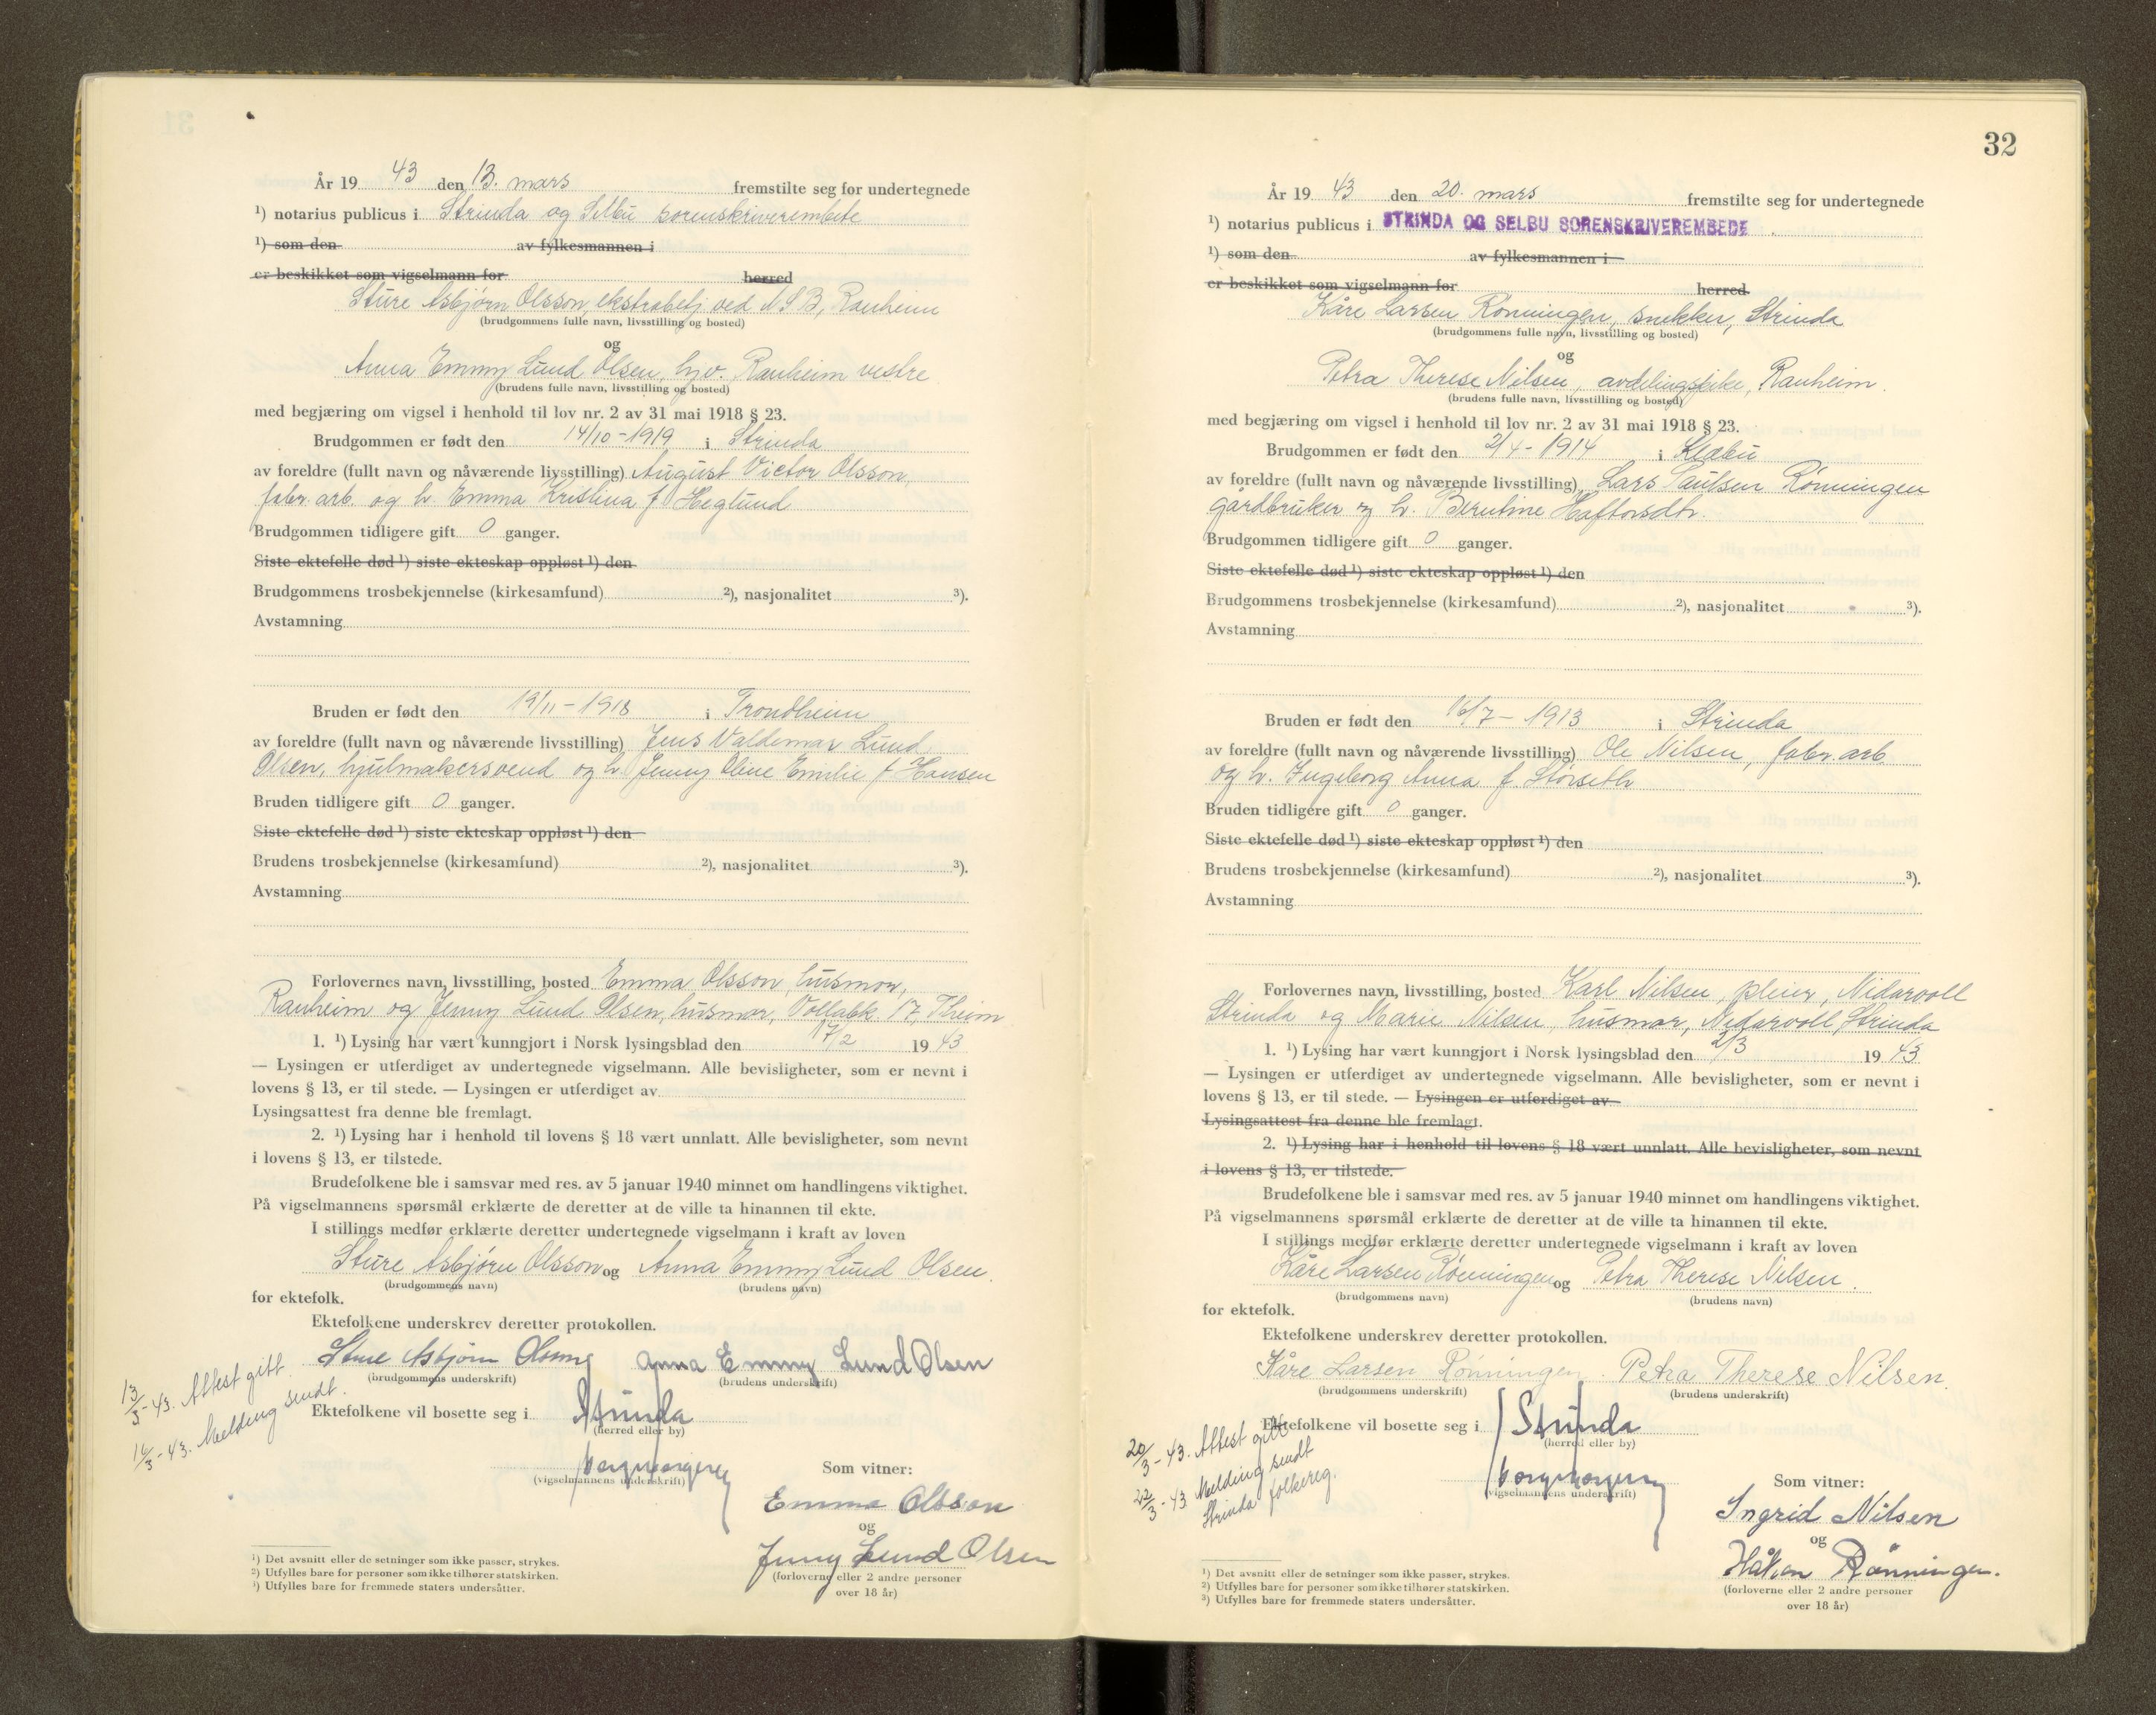 År 19 43 den 13. mars fremstilte seg for undertegnede
¹) notarius publicus i Strinda og Selbu sorenskriverembete
¹) som den av fylkesmannen i
er beskikket som vigselmann for herred
Sture Asbjørn Olsson, ekstrabetj. ved N S B, Ranheim
(brudgommens fulle navn, livsstilling og bosted)
og
Anna Emmy Lund Olsen, hjv. Ranheim vestre
(brudens fulle navn, livsstilling og bosted)
med begjæring om vigsel i henhold til lov nr. 2 av 31 mai 1918 § 23.
Brudgommen er født den 14/10 - 1919 i Strinda
av foreldre (fullt navn og nåværende livsstilling) August Victor Olsson,
fabr. arb. og h. Emma Kristina f. Heglund
Brudgommen tidligere gift 0 ganger.
Siste ektefelle død ¹) siste ekteskap oppløst ¹) den
Brudgommens trosbekjennelse (kirkesamfund) ²), nasjonalitet ³).
Avstamning
Bruden er født den 19/11 - 1918 i Trondheim
av foreldre (fullt navn og nåværende livsstilling) Jens Valdemar Lund
Olsen, hjulmakersvend og h. Jenny Oline Emilie f. Hansen
Bruden tidligere gift 0 ganger.
Siste ektefelle død ¹) siste ekteskap oppløst ¹) den
Brudens trosbekjennelse (kirkesamfund) ²), nasjonalitet ³).
Avstamning
Forlovernes navn, livsstilling, bosted Emma Olsson, husmor,
Ranheim og Jenny Lund Olsen, husmor, Vollabk 17, Theim
1. ¹) Lysing har vært kunngjort i Norsk lysingsblad den 17/2 19 43
— Lysingen er utferdiget av undertegnede vigselmann. Alle bevisligheter, som er nevnt i
lovens § 13, er til stede. — Lysingen er utferdiget av
Lysingsattest fra denne ble fremlagt.
2. ¹) Lysing har i henhold til lovens § 18 vært unnlatt. Alle bevisligheter, som nevnt
i lovens § 13, er tilstede.
Brudefolkene ble i samsvar med res. av 5 januar 1940 minnet om handlingens viktighet.
På vigselmannens spørsmål erklærte de deretter at de ville ta hinannen til ekte.
I stillings medfør erklærte deretter undertegnede vigselmann i kraft av loven
Sture Asbjørn Olsson og Anna Emmy Lund Olsen.
(brudgommens navn) (brudens navn)
for ektefolk.
Ektefolkene underskrev deretter protokollen.
Sture Asbjørn Olsson Anna Emmy Lund Olsen
(brudgommens underskrift) (brudens underskrift)
13/3 - 43. Attest gitt.
16/3 - 43. Melding sendt.
Ektefolkene vil bosette seg i Strinda
(herred eller by)
(vigselmannens underskrift)
Som vitner:
Emma Olsson
og
Jenny Lund Olsen
(forloverne eller 2 andre personer
over 18 år)
¹) Det avsnitt eller de setninger som ikke passer, strykes.
²) Utfylles bare for personer som ikke tilhører statskirken.
³) Utfylles bare for fremmede staters undersåtter.
32
År 19 43 den 20. mars fremstilte seg for undertegnede
¹) notarius publicus i STRINDA OG SELBU SORENSKRIVEREMBEDE
¹) som den av fylkesmannen i
er beskikket som vigselmann for herred
Kåre Larsen Rønningen, snekker, Strinda
(brudgommens fulle navn, livsstilling og bosted)
og
Petra Therese Nilsen, avdelingspike, Ranheim.
(brudens fulle navn, livsstilling og bosted)
med begjæring om vigsel i henhold til lov nr. 2 av 31 mai 1918 § 23.
Brudgommen er født den 2/4 - 1914 i Klæbu
av foreldre (fullt navn og nåværende livsstilling) Lars Paulsen Rønningen
gårdbruker og h. Berntine Haftorsdtr.
Brudgommen tidligere gift 0 ganger.
Siste ektefelle død ¹) siste ekteskap oppløst ¹) den
Brudgommens trosbekjennelse (kirkesamfund) ²), nasjonalitet ³).
Avstamning
Bruden er født den 16/7 - 1913 i Strinda
av foreldre (fullt navn og nåværende livsstilling) Ole Nilsen, fabr. arb.
og h. Ingeborg Anna f. Storseth
Bruden tidligere gift 0 ganger.
Siste ektefelle død ¹) siste ekteskap oppløst ¹) den
Brudens trosbekjennelse (kirkesamfund) ²), nasjonalitet ³).
Avstamning
Forlovernes navn, livsstilling, bosted Karl Nilsen, pleier, Nidarvoll
Strinda og Marie Nilsen, husmor, Nidarvoll, Strinda
1. ¹) Lysing har vært kunngjort i Norsk lysingsblad den 2/3 19 43
— Lysingen er utferdiget av undertegnede vigselmann. Alle bevisligheter, som er nevnt i
lovens § 13, er til stede. — Lysingen er utferdiget av
Lysingsattest fra denne ble fremlagt.
2. ¹) Lysing har i henhold til lovens § 18 vært unnlatt. Alle bevisligheter, som nevnt
i lovens § 13, er tilstede.
Brudefolkene ble i samsvar med res. av 5 januar 1940 minnet om handlingens viktighet.
På vigselmannens spørsmål erklærte de deretter at de ville ta hinannen til ekte.
I stillings medfør erklærte deretter undertegnede vigselmann i kraft av loven
Kåre Larsen Rønningen og Petra Therese Nilsen.
(brudgommens navn) (brudens navn)
for ektefolk.
Ektefolkene underskrev deretter protokollen.
Kåre Larsen Rønningen. Petra Therese Nilsen.
(brudgommens underskrift) (brudens underskrift)
20/3 - 43. Attest gitt
22/3 - 43 Melding sendt
Strinda folkereg.
Ektefolkene vil bosette seg i Strinda
(herred eller by)
(vigselmannens underskrift)
Som vitner:
Ingrid Nilsen
og
Håkon Rønningen.
(forloverne eller 2 andre personer
over 18 år)
¹) Det avsnitt eller de setninger som ikke passer, strykes.
²) Utfylles bare for personer som ikke tilhører statskirken.
³) Utfylles bare for fremmede staters undersåtter.